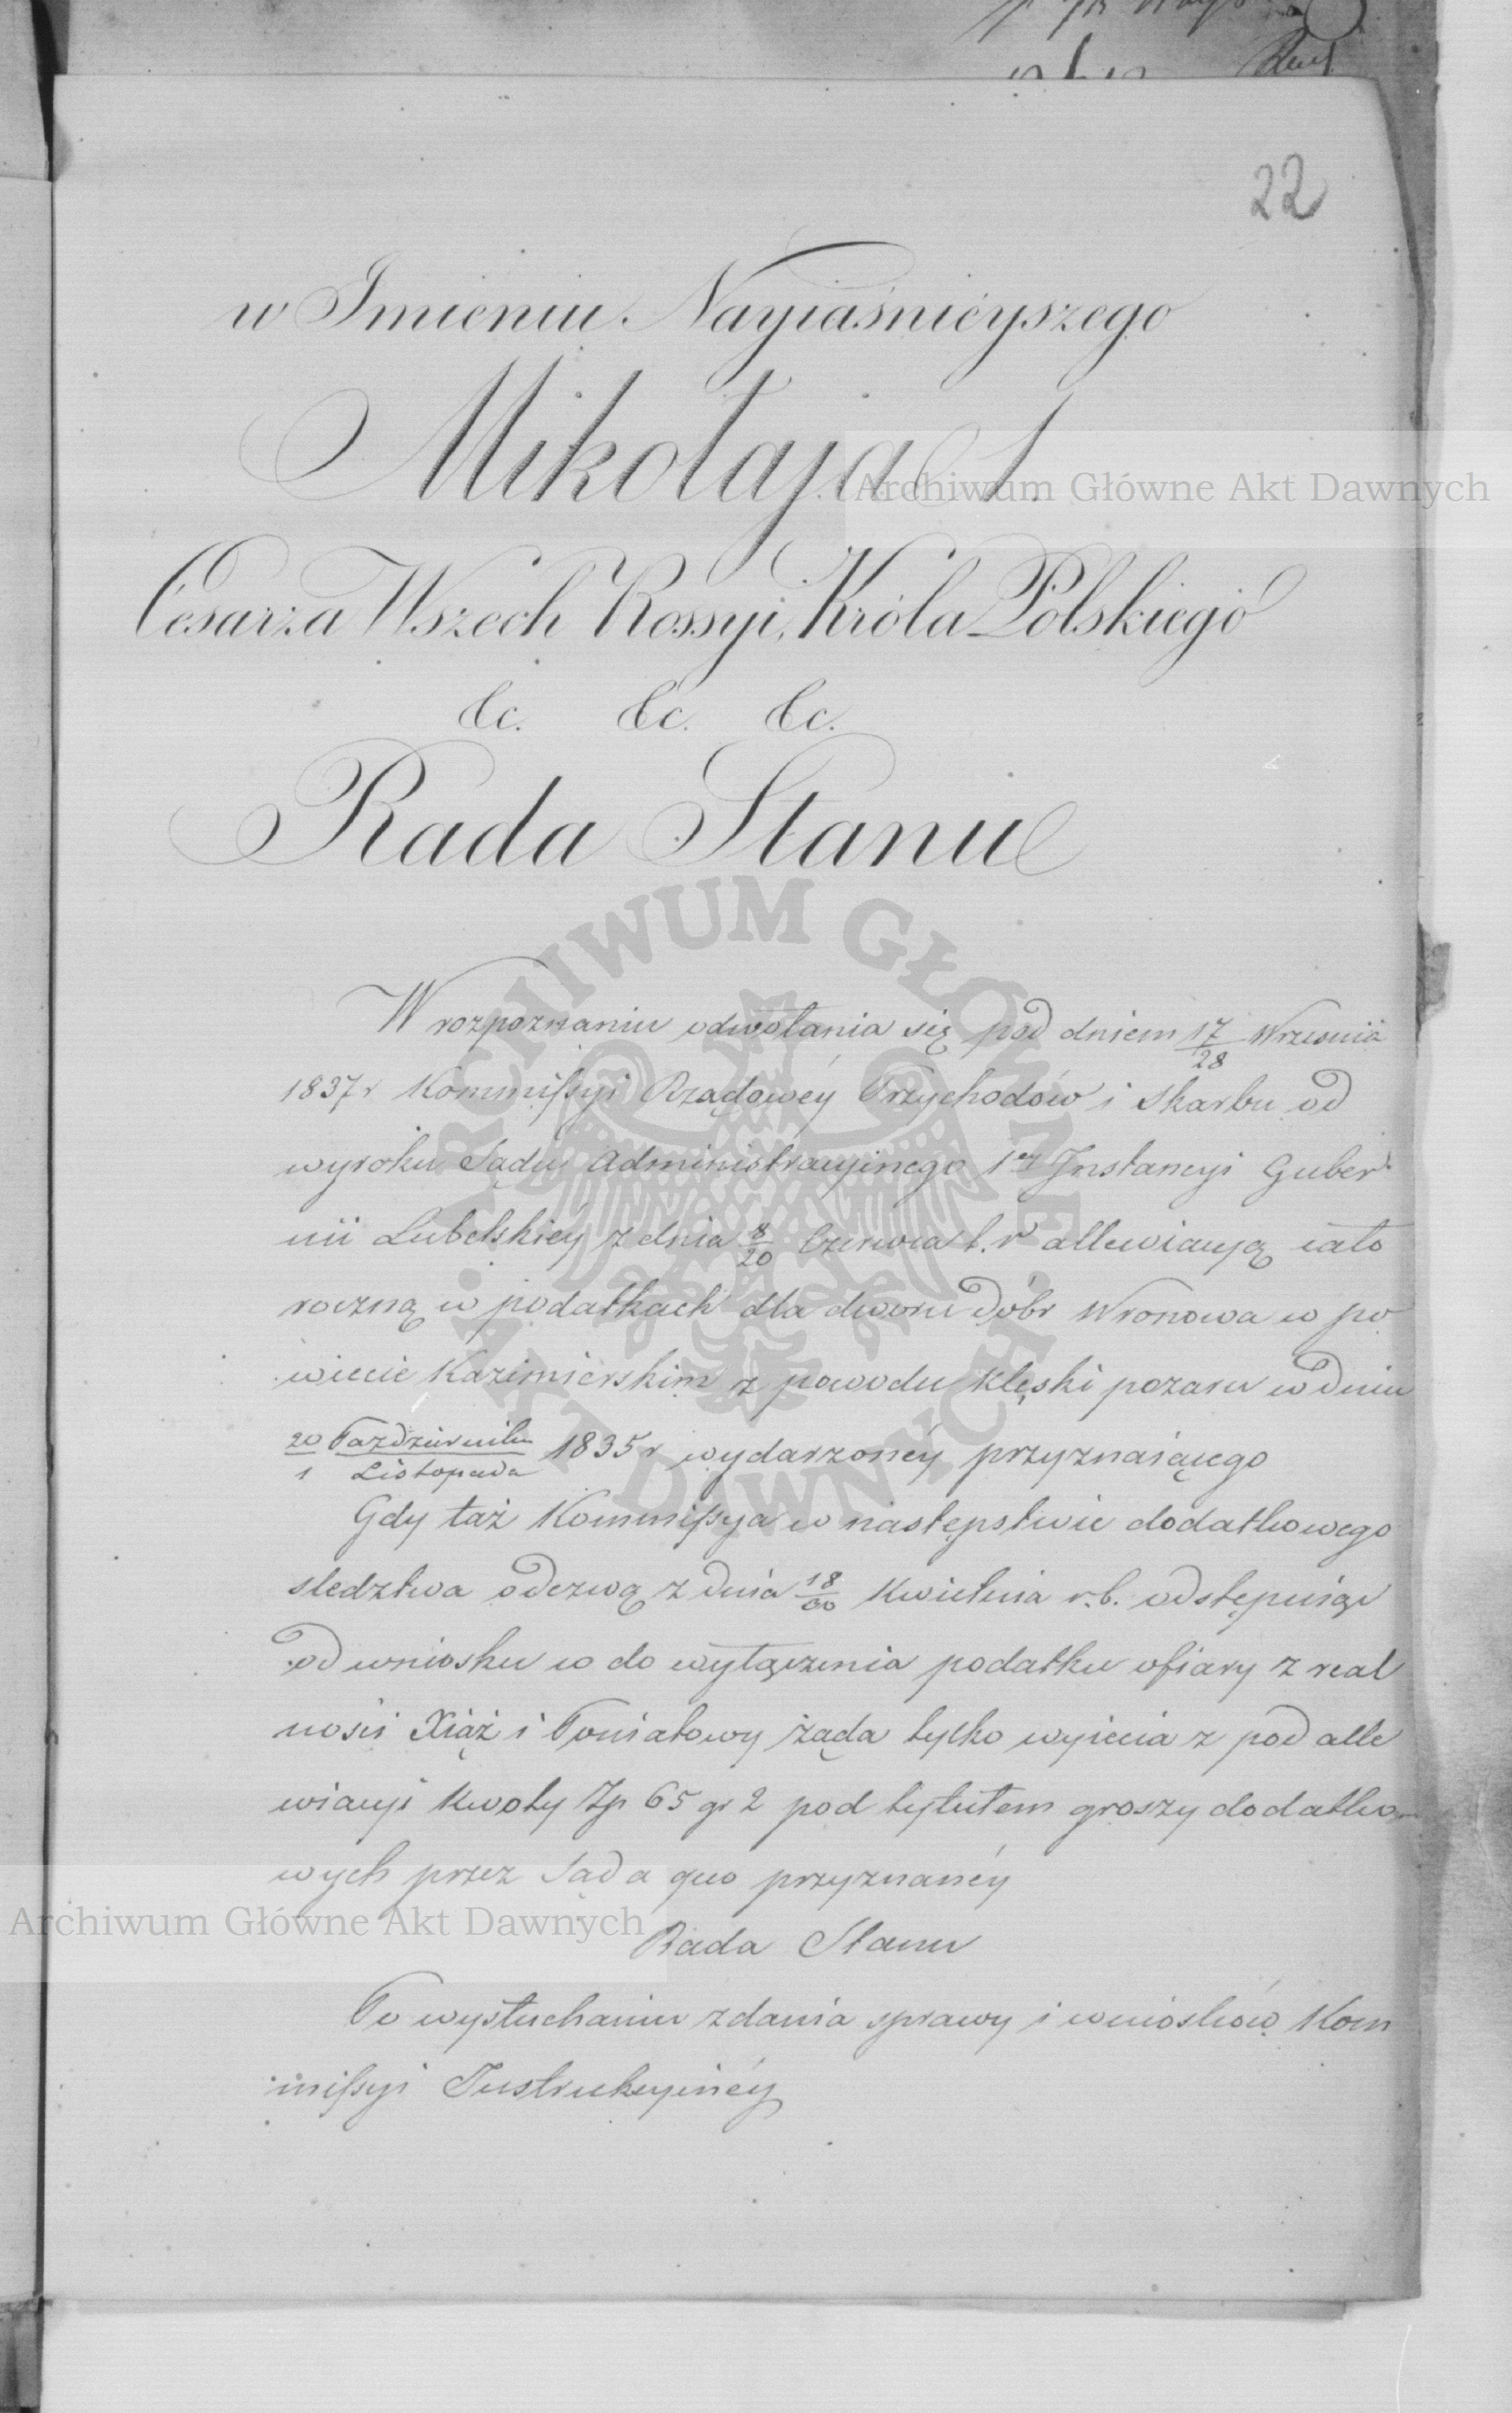 22
w Imieniu Nayiaśnieyszego
Mikołaja I.
Cesarza Wszech Rossyi, Króla Polskiego
&c. &c. &c.
Rada Stanu
W rozpoznaniu odwołania się pod dniem 17/28 Września
1837 r Kommissyi Rządowéy Przychodów i Skarbu od
wyroku Sądu Administracyinego 1éy Instancyi Guber
nii Lubelskiéy z dnia 8/20 Czerwca t. r allewiacyą cało
roczną w podatkach dla dworu dóbr Wronowa w po
wiecie Kazimierskim z powodu klęski pożaru w dniu
20 Października/1 Listopada 1835 r wydarzonéy przyznaiącego
Gdy taż Kommissya w następstwie dodatkowego
śledztwa odezwą z dnia 18/30 Kwietnia r. b. odstępuiąc
od wniosku w do wyłączenia podatku ofiary z real
ności Xiąż i Poniatowy żąda tylko wyięcia z pod alle
wiacyi kwoty Zp 65 gr 2 pod tytułem groszy dodatko
wych przez Sąd a quo przyznanéy
Rada Stanu
Po wysłuchaniu zdania sprawy i wniosków Kom
missyi Instrukcyinéy
Archiwum Główne Akt Dawnych
ARCHIWUM GŁÓWNE
AKT DAWNYCH
Archiwum Główne Akt Dawnych